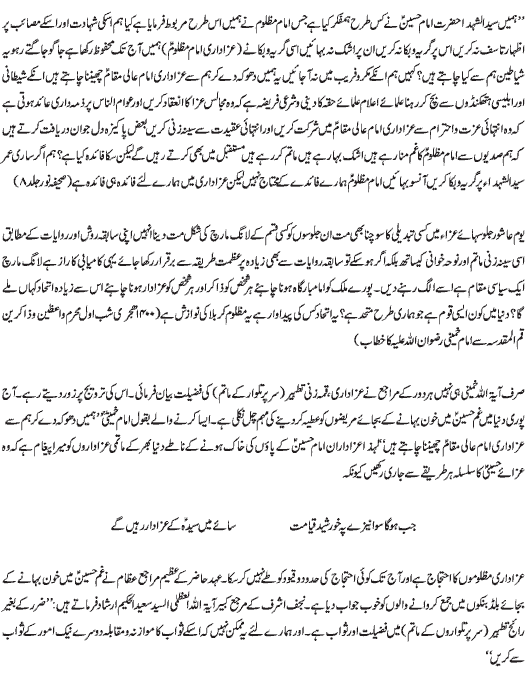 "ہمیں سید الشہداء حضرت امام حسینؑ نے کس طرح ہمفکر کیا ہے جس امام مظلوم نے ہمیں اس طرح مربوط فرمایا ہے کیا ہم اسکی شہادت اور اسکے مصائب پر
اظہار تاسف نہ کریں اس پر گریہ وبکا نہ کریں ان پر اشک نہ بہائیں اسی گریہ وبکا نے (عزاداری امام مظلومؑ) ہمیں آج تک محفوظ رکھا ہے جا گو جاگتے رہو یہ
شیاطین ہم سے کیا چاہتے ہیں؟ کہیں ہم انکے مکر و فریب میں نہ آ جائیں یہ ہمیں دھوکہ دے کر ہم سے عزاداری امام عالی مقامؑ چھیننا چاہتے ہیں انکے شیطانی
اور ابلیسی ہتھکنڈوں سے بچ کر رہنا علمائے اعلام علمائے حقہ کا دینی و شرعی فریضہ ہے کہ وہ مجالس عزا کا انعقاد کریں اور عوام الناس پر ذمہ داری عائد ہوتی ہے
وہ انتہائی عزت و احترام سے عزاداری امام عالی مقامؑ میں شرکت کریں اور انتہائی عقیدت سے سینہ زنی کریں بعض پاکیزہ دل جوان دریافت کرتے ہیں
کہ ہم صدیوں سے امام مظلومؑ کا غم منا رہے ہیں اشک بہا رہے ہیں ماتم کر رہے ہیں مستقبل میں بھی کرتے رہیں گے لیکن سکا فائدہ کیا ہے؟ ہم اگر ساری عمر
سید الشہداء پر گریہ وبکا کریں آنسو بہائیں امام مظلومؑ ہمارے فائدے کے محتاج نہیں لیکن عزاداری میں ہمارے لئے فائدہ ہی فائدہ ہے (صحیفہ نور جلد ۸)
یوم عاشور جلوسہائے عزاء میں کسی تبدیلی کا سوچنا بھی مت ان جلوسوں کو کسی قسم کے لانگ مارچ کی شکل مت دینا انہیں اپنی سابقہ روش اور روایات کے مطابق
سینہ زنی ماتم اور نوحہ خوانی کیساتھ بلکہ اگر ہو سکے تو سابقہ روایات سے بھی زیادہ پر عظمت طریقہ سے برقرار رکھا جائے یہی کامیابی کا راز ہے لانگ مارچ
ایک سیاسی مقام ہے اسے الگ رہنے دیں۔ پورے ملک کو امام بارگاہ ہونا چاہئے ہر شخص کو ذاکر اور ہر شخص کو عزادار ہونا چاہئے اس سے زیادہ اتحاد کہاں ملے
گا؟ دنیا میں کون ایسی قوم ہے جو ہماری طرح متحد ہے؟ یہ اتحاد کس کی پیداوار ہے یہ مظلوم کربلا کی نوازش ہے (۱۴۰۰ ہجری شب اول محرم واعظین و ذاکرین
قم المقدسہ سے امام خمینی رضوان اللہ علیہ کا خطاب)
صرف آیۃ اللہ خمینی ہی نہیں ہر دور کے مراجع نے عزاداری، قمہ زنی تطہیر (سر پر تلوار کے ماتم) کی فضیلت بیان فرمائی۔ اس کی ترویج پر زور دیتے رہے۔ آج
پوری دنیا میں غم حسینؑ میں خون بہانے کے بجائے مریضوں کو عطیہ کر دینے کی مہم چل نکلی ہے۔ ایسا کرنے والے بقول امام خمینیؒ "ہمیں دھوکہ دے کر ہم سے
عزاداری امام عالی مقامؑ چھیننا چاہتے ہیں" لہذا عزاداران امام حسینؑ کے پاؤں کی خاک ہونے کے ناطے دنیا بھر کے ماتمی عزاداروں کو میرا پیغام ہے کہ وہ
عزائے حسینیؑ کا سلسلہ ہر طریقے سے جاری رکھیں کیونکہ
جب ہو گا سوا نیزے پہ خورشید قیامت سائے میں سیدہ کے عزادار رہیں گے
عزاداری مظلوموں کا احتجاج ہے اور آج تک کوئی احتجاج کی حدود و قیود کو طے نہیں کر سکا۔ عہد حاضر کے عظیم مراجع عظام نے غم حسینؑ میں خون بہانے کے
بجائے بلڈ بنکوں میں جمع کروانے والوں کو خوب جواب دیا ہے۔ نجف اشرف کے مرجع کبیر آیۃ اللہ العظمیٰ السید سعید الحکیم ارشاد فرماتے ہیں: "ضرر کے بغیر
رائج تطہیر (سر پر تلواروں کے ماتم) میں فضیلت اور ثواب ہے۔ اور ہمارے لئے یہ ممکن نہیں کہ اسکے ثواب کا موازنہ و مقابلہ دوسرے نیک امور کے ثواب
سے کریں"